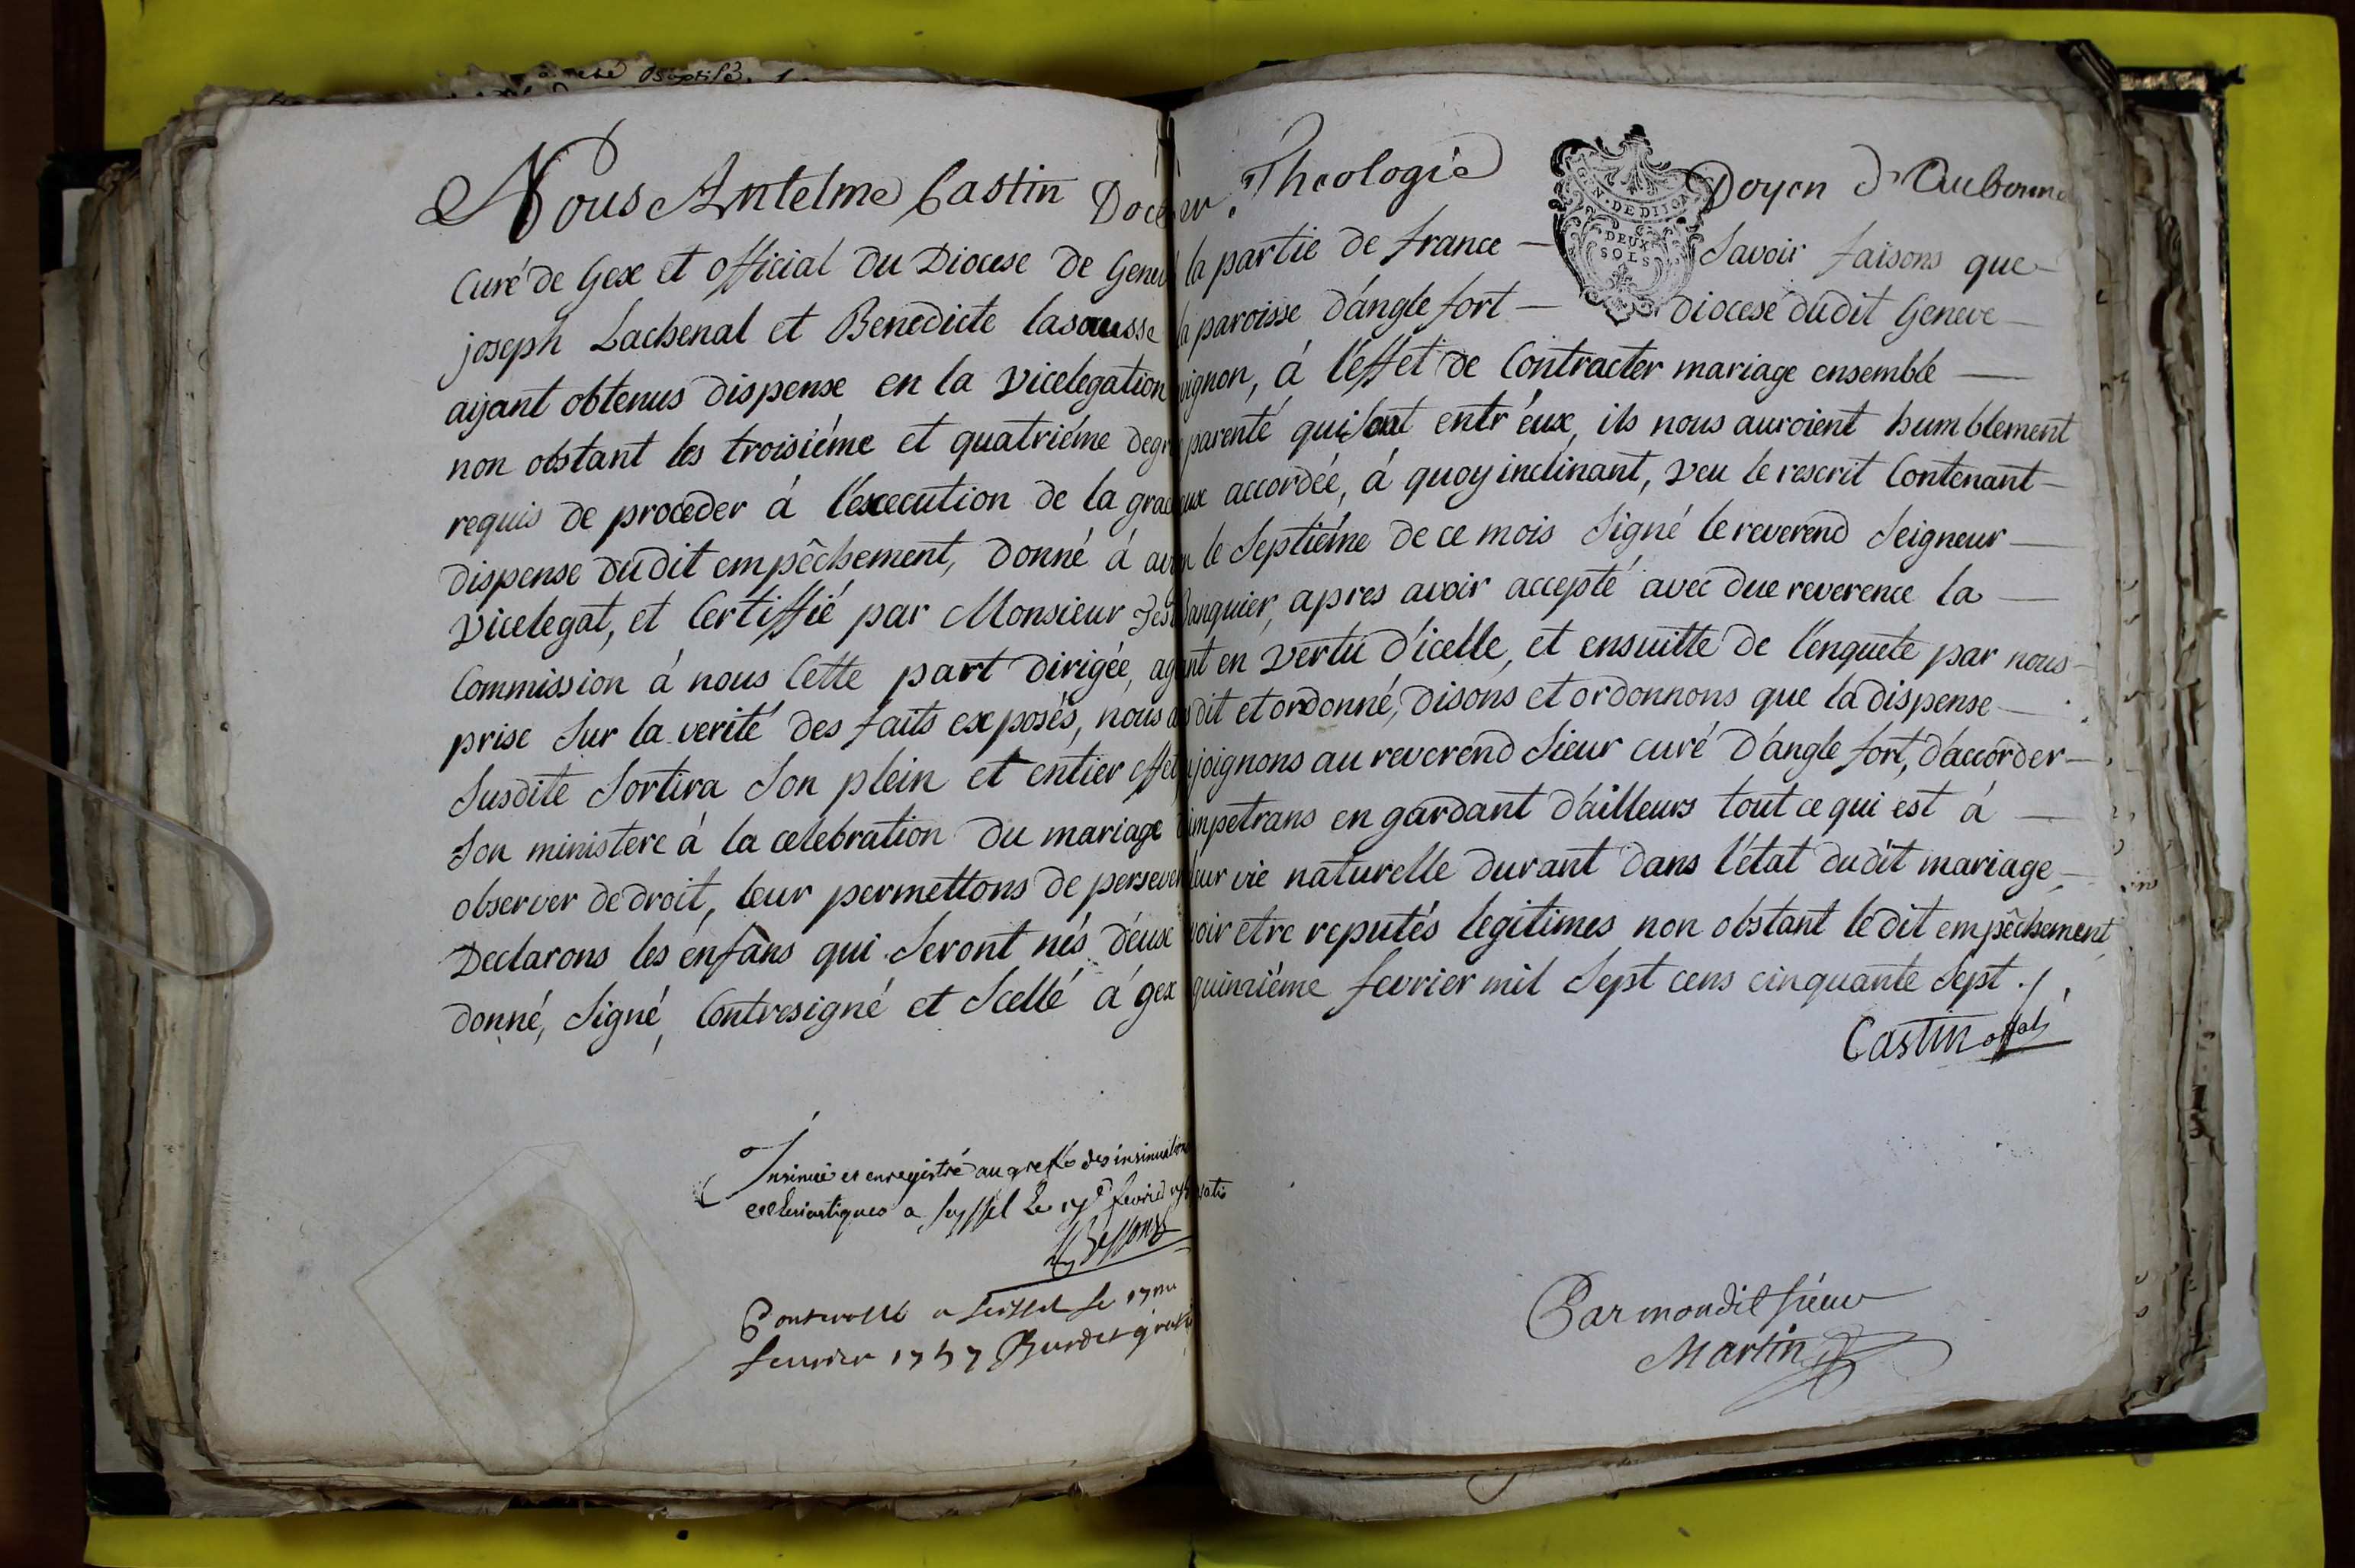 à eté Baptisé
Nous Antelme Castin Docteur Theologie Doyen d'Aubonne
Curé de Gex et official du Diocese de Genev la partie de france — Savoir faisons que
joseph Lachenal et Benedicte lasausse la paroisse d'anglefort — diocese dudit Geneve
aijant obtenus dispense en la vicelegation vignon, á l'effet de Contracter mariage ensemble —
non obstant les troisiéme et quatriéme degré parenté qui sont entr'eux, ils nous auroient humblement
requis de proceder á l'execution de la grace eux accordée, á quoy inclinant, veu le rescrit Contenant
dispense dudit empêchement, donné á avi n le Septiéme de ce mois Signé le reverend Seigneur
vicelegat, et Certiffié par Monsieur Banquier, apres avoir accepté avec due reverence la —
Commission á nous Cette part dirigée, agant en vertu d'icelle, et ensuitte de l'enquete par nous
prise Sur la verité des faits exposés, nous dit et ordonné, disons et ordonnons que la dispense
Susdite Sortira Son plein et entier effet joignons au reverend Sieur curé d'anglefort, d'accorder
Son ministere á la celebration du mariage impetrans en gardant d'ailleurs tout ce qui est á —
observer de droit, leur permettons de persever leur vie naturelle durant dans l'état dudit mariage,
Declarons les enfans qui Seront nés d'eux voir etre reputés legitimes non obstant ledit empêchement,
donné, Signé, Contresigné et Scellé á gex quinziéme fevrier mil Sept cens cinquante Sept ./.
GEN. DE DIJON
DEUX
SOLS
Castin offal
Insinué et enregistré au greffe des insinuations
ecclesiastiques a Seyssel Le 17e fevrier gratis
Bessons
Controllé a Seissel le 17me
feuvrier 1757 Burdet gratis
Par mondit Sieur
Martin